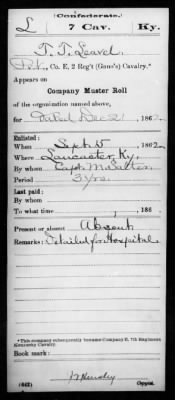 (Confederate.)
L 7 Cav. Ky.
T. T. Leavel
Pvt., Co. E, 2 Reg't (Gano's) Cavalry.*
Appears on
Company Muster Roll
of the organization named above,
for Dated Dec 21, 1862.
Enlisted:
When Sept. 15, 1862.
Where Lancaster, Ky.
By whom Capt.
Period 3 yrs.
Last paid:
By whom
To what time , 186 .
Present or absent Absent
Remarks: Detailed for Hospital
*This company subsequently became Company E, 7th Regiment Kentucky Cavalry.
Book mark:
(642) Copyist.